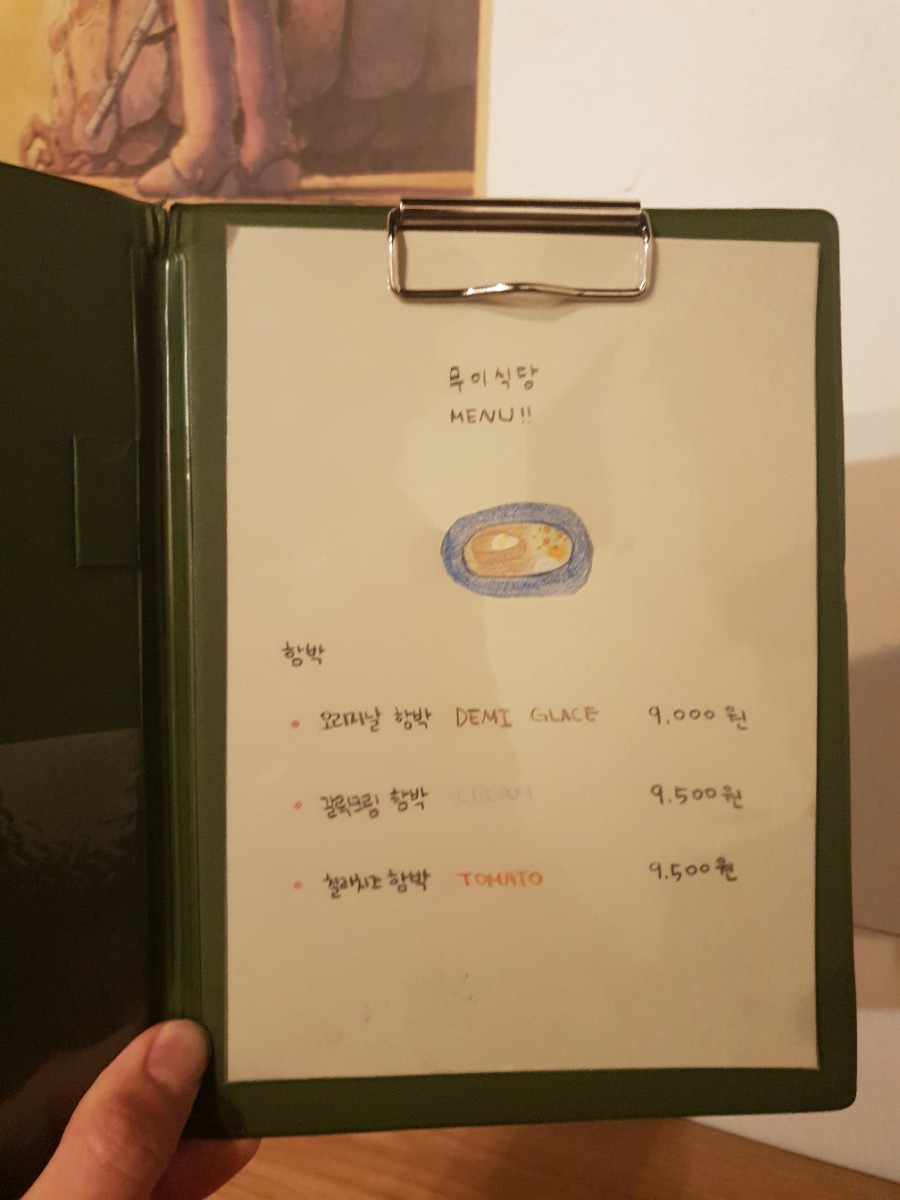 무이식당
MENU!!
함박
• 오리지날 함박 DEMI GLACE 9,000 원
• 갈릭크림 함박 CREAM 9.500원
• 칠리치즈 함박 TOMATO 9.500원